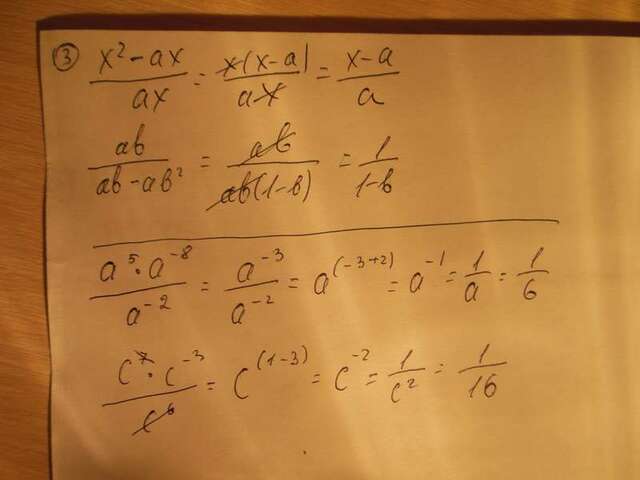 ③ (x² - ax)/(ax) = (x(x-a))/(ax) = (x-a)/a
ab/(ab-ab²) = ab/(ab(1-b)) = 1/(1-b)
(a⁵·a⁻⁸)/a⁻² = a⁻³/a⁻² = a⁽⁻³⁺²⁾ = a⁻¹ = 1/a = 1/6
(c⁷·c⁻³)/c⁶ = c⁽¹⁻³⁾ = c⁻² = 1/c² = 1/16